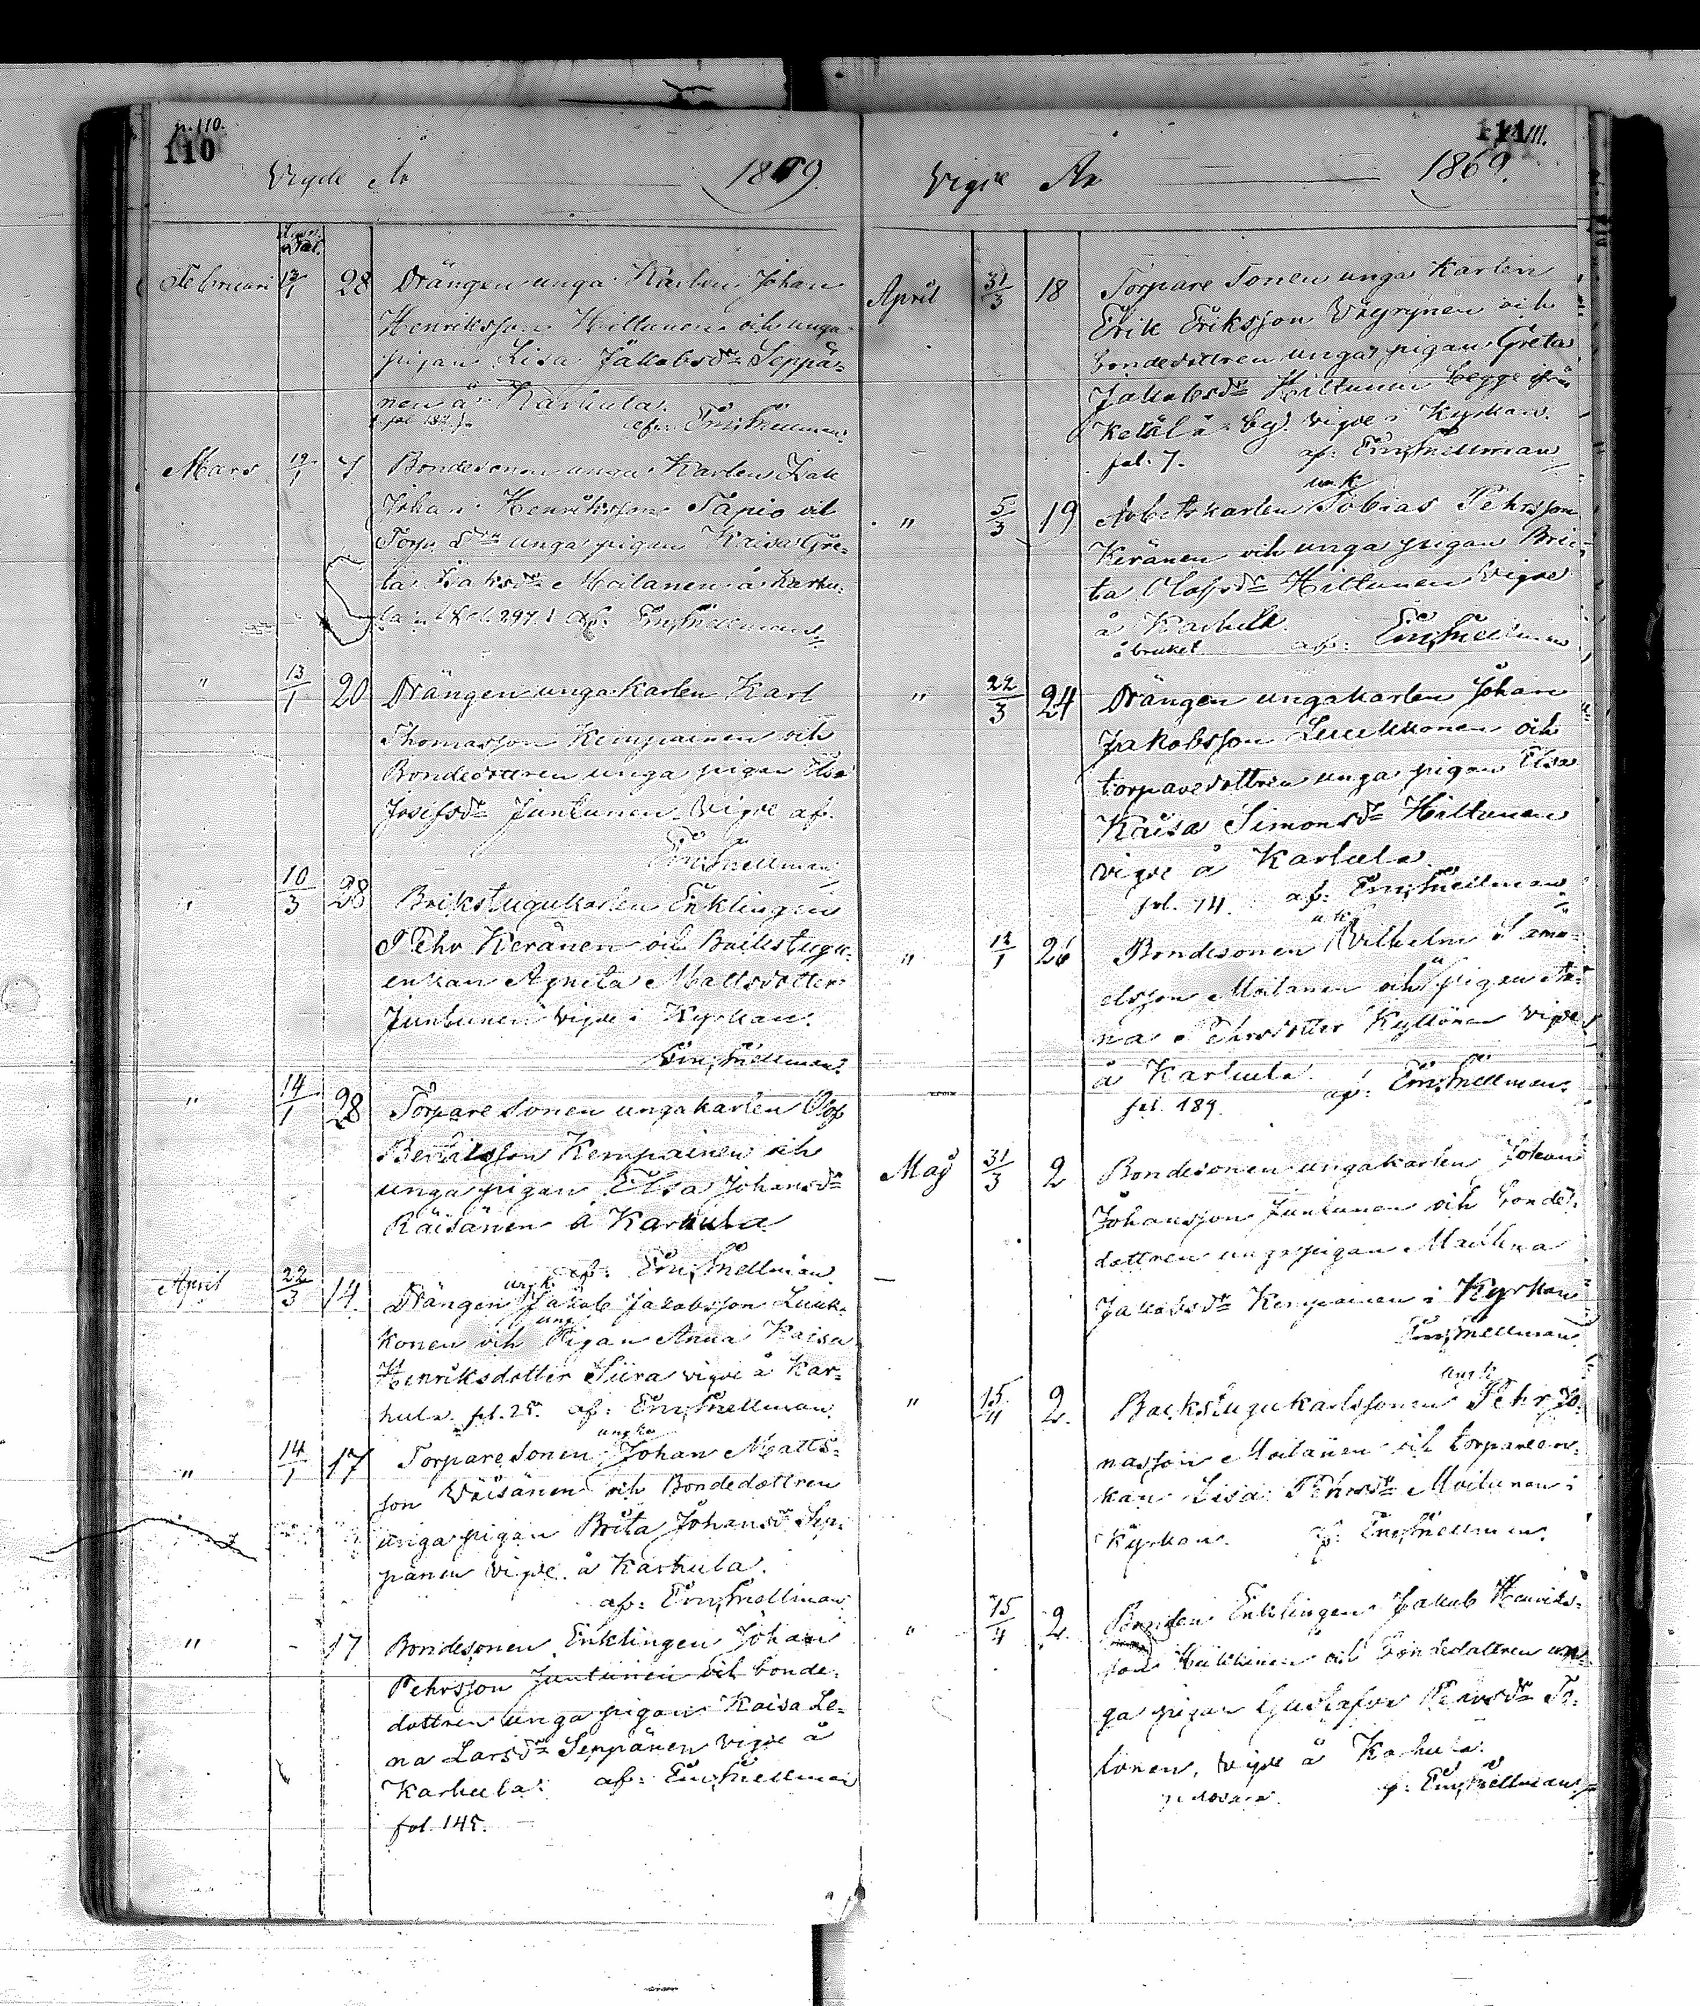 p. 110.
110
Vigde År 1869.
Februari 28 Drängen unga Karlen Johan
Henriksson Hiltunen och unga
pigan Lisa Jakobsdr Seppä-
nen å Karhula.
af: Em. Snellman.
Mars 19/1 7 Bondesonen unga Karlen Isak
Johan Henriksson Tapio och
Torp. dtrn unga pigan Kaisa Gre-
ta Isaksdr Moilanen å Karhu-
la. fol. 297. af: Em. Snellman.
" 13/1 20 Drängen unga karlen Karl
Thomasson Kempainen och
Bondedottren unga pigan Elsa
Josefsdr Juntunen. Vigde af.
Em. Snellman
" 10/3 28 Enklingen
Pehr Keränen och Backstugu-
enkan Agneta Mattsdotter
Juntunen Vigde i Kyrkan.
Em. Snellman.
" 14/1 28 Torpare Sonen unga karlen Olof
Bertilsson Kempainen och
unga pigan Elsa Johansdr
Räisänen å Karhula
af: Em. Snellman.
April 22/3 14. Drängen ungk. Jakob Jakobsson Luuk-
konen och ung. Pigan Anna Kaisa
Henriksdotter Siira vigde å Kar-
hula. fol. 25. af: Em. Snellman.
" 14/1 17 Torpare Sonen Johan Matts-
son Väisänen och Bondedottren
unga pigan Brita Johansdr Sep-
pänen vigde å Karhula.
af: Em. Snellman.
" - 17 Bondesonen Enklingen Johan
Pehrsson Juntunen och bonde-
dottren unga pigan Kaisa Le-
na Larsdr Seppänen vigde å
Karhula. af: Em. Snellman
fol. 145.
111
Vigde År 1869.
April 31/3 18 Torpare Sonen unga Karlen
Erik Eriksson Väyrynen och
bondedottren unga pigan Greta
Jakobsdr Hiltunen begge från
Ketälä by. vigde i Kyrkan.
fol. 7. af: Em. Snellman
" 5/3 19 Arbetskarlen ungk Tobias Pehrsson
Keränen och unga pigan Bri-
ta Olofsdr Hiltunen Vigde
å Karhula.
å bruket af: Em. Snellman
" 22/3 24 Drängen unga karlen Johan
Jakobsson Luukkonen och
torparedottren unga pigan Elsa
Kaisa Simonsdr Hiltunen
vigde å Karhula.
fol. 74. af: Em. Snellman
" 12/1 26 Bondesonen u.k. Vilhelm Samu-
elsson Moilanen och pigan An-
na Pehrsdotter Kyllönen vigde
å Karhula.
fol. 189. af: Em. Snellman.
Maj 31/3 2 Bondesonen unga karlen Johan
Johansson Juntunen och bonde-
dottren unga pigan
Jakobsdr Kempainen i Kyrkan
Em. Snellman.
" 15/4 2. Backstugukarlssonen ungk Pehr Jo-
nasson Moilanen och torpareen-
kan Lisa Pehrsdr Moilanen i
Kyrkan. af: Em. Snellman.
" 15/4 2. Bonden Enklingen Jakob Henriks-
son och bondedottren un-
ga pigan Gustafva Pehrsdr To-
lonen, vigde å Karhula.
af: Em. Snellman.